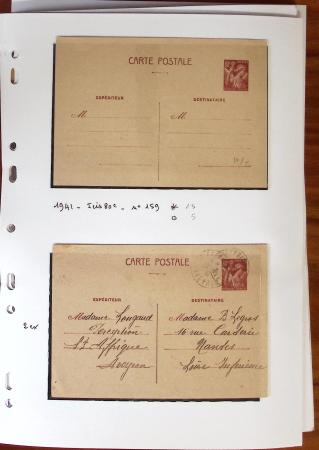 CARTE POSTALE
EXPÉDITEUR
DESTINATAIRE
M
M
1941 - Iris 80c - n° 159 * 15
o 5
CARTE POSTALE
EXPÉDITEUR
DESTINATAIRE
Madame Longaud
Madame B Legros
Perception
16 rue
St Affrique
Nantes
Aveyron
Loire Inférieure
2 ex